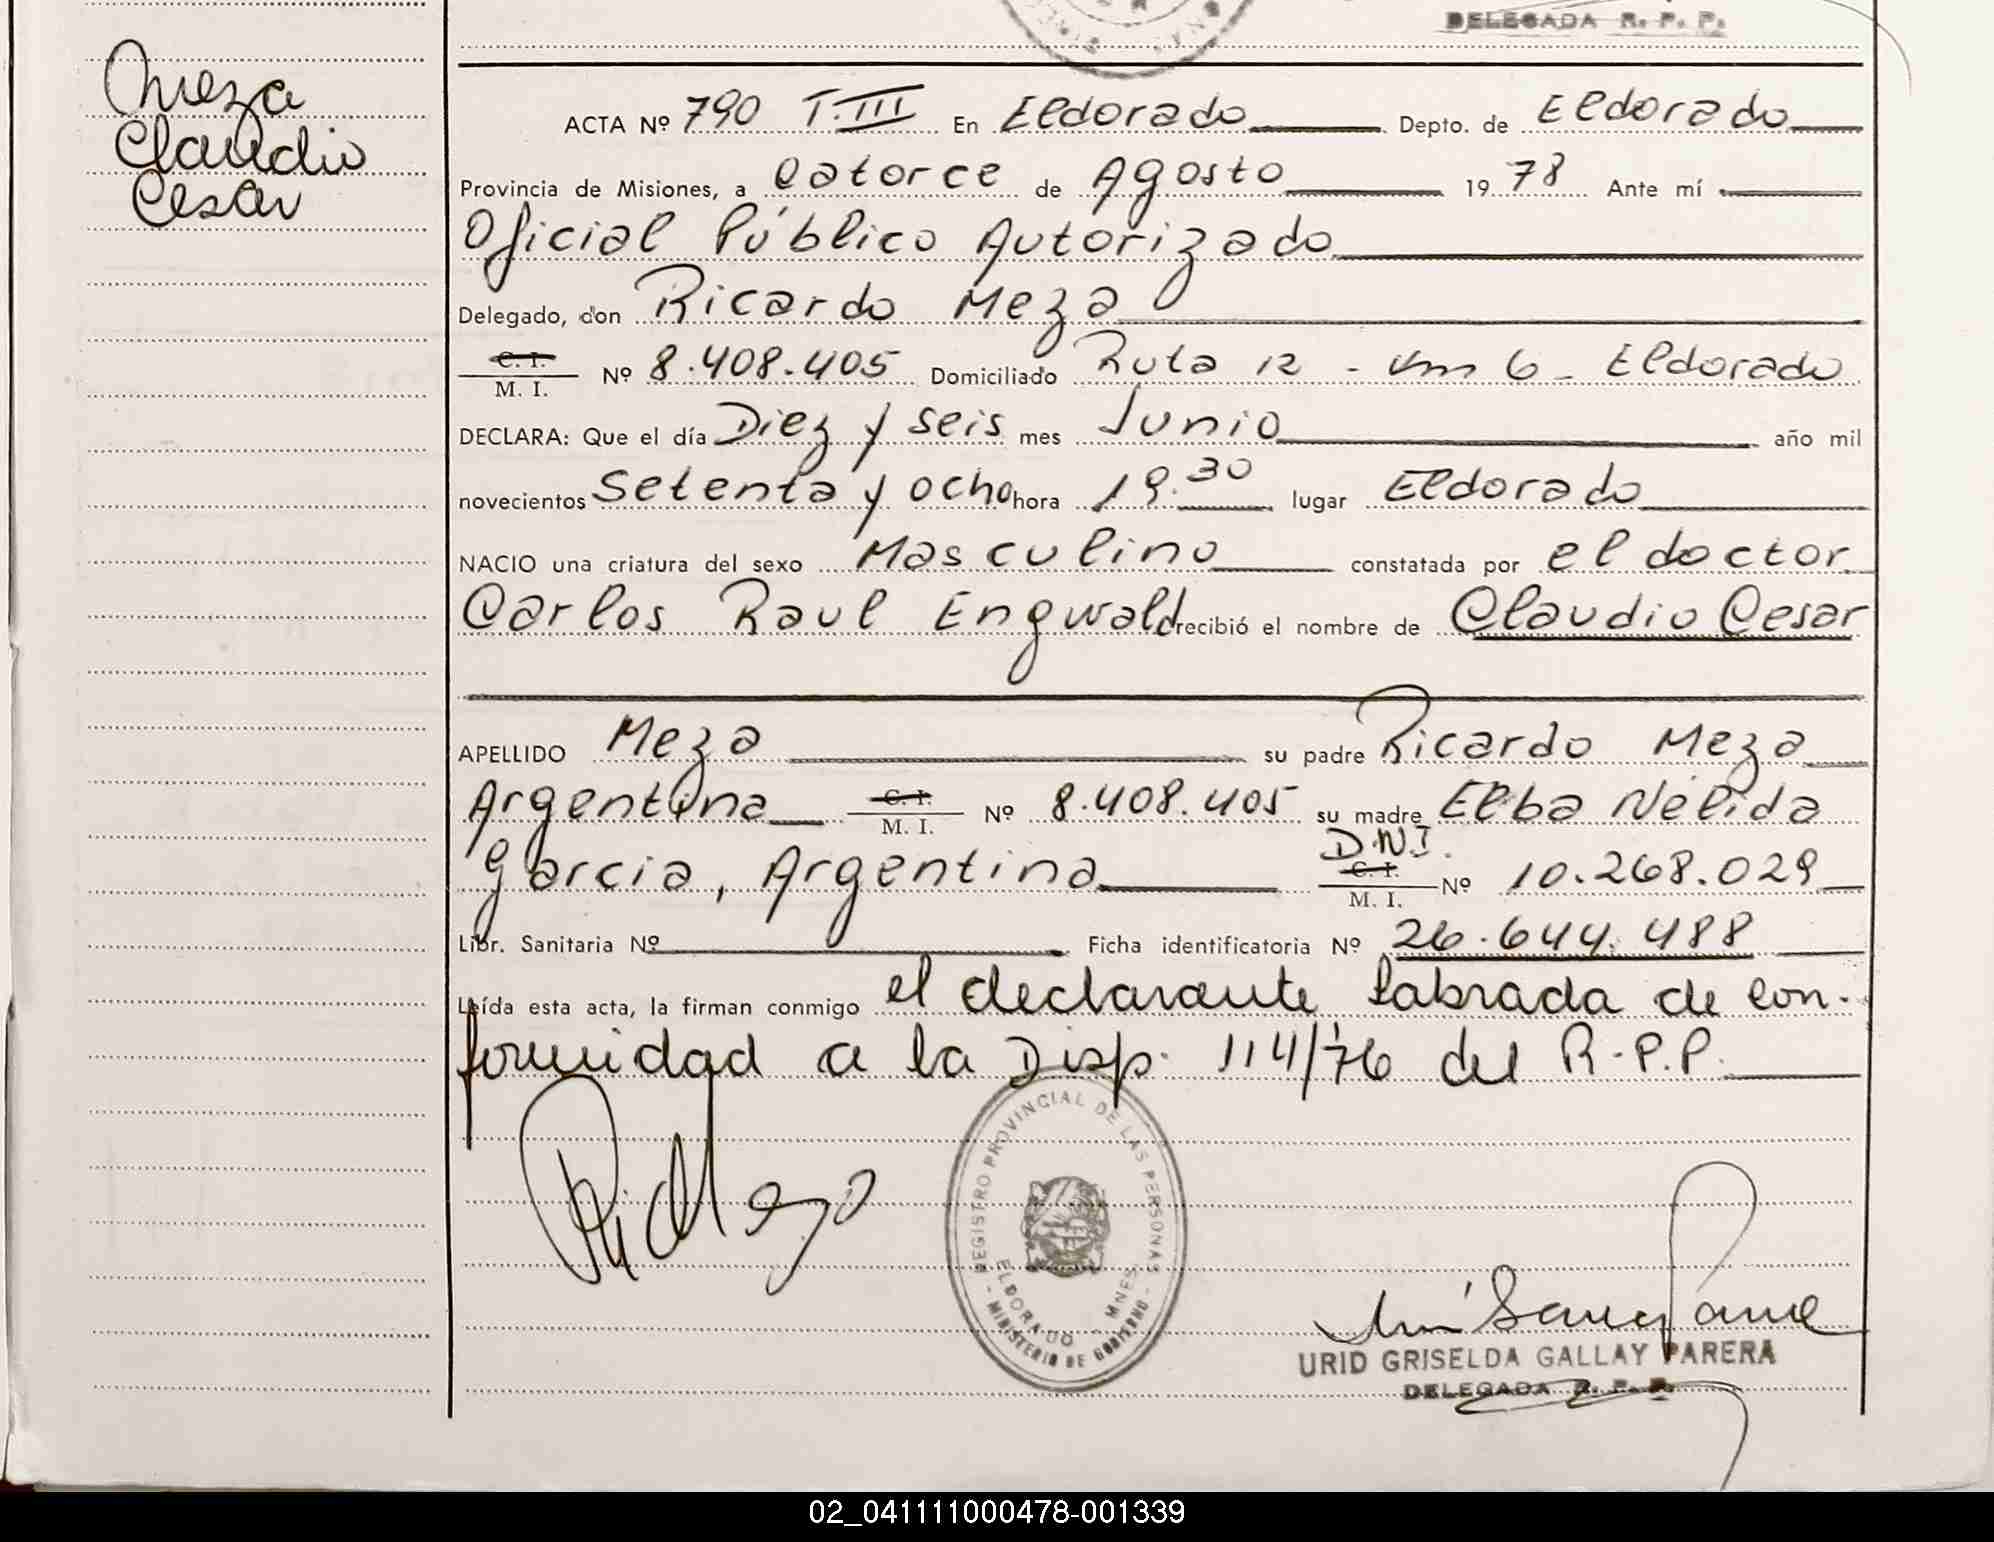 DELEGADA R. P. P.
Meza
Claudio
Cesar
ACTA Nº 790 T.III En Eldorado Depto. de Eldorado
Provincia de Misiones, a Catorce de Agosto 1978 Ante mí
Oficial Público Autorizado
Delegado, don Ricardo Meza
C. I. M. I. Nº 8.408.405 Domiciliado Ruta 12 - Km 6 - Eldorado
DECLARA: Que el día Diez y seis mes Junio año mil
novecientos Setenta y ocho hora 19.30 lugar Eldorado
NACIO una criatura del sexo Masculino constatada por el doctor
Carlos Raul Engwald recibió el nombre de Claudio Cesar
APELLIDO Meza su padre Ricardo Meza
Argentina C. I. M. I. Nº 8.408.405 su madre Elba Nélida
Garcia, Argentina D.N.I. C. I. M. I. Nº 10.268.029
Libr. Sanitaria Nº Ficha identificatoria Nº 26.644.488
Leída esta acta, la firman conmigo el declarante labrada de con-
formidad a la Disp. 114/76 del R.P.P.
REGISTRO PROVINCIAL DE LAS PERSONAS
ELDORADO - MNES.
- MINISTERIO DE GOBIERNO -
URID GRISELDA GALLAY PARERA
DELEGADA R. P. P.
02_041111000478-001339